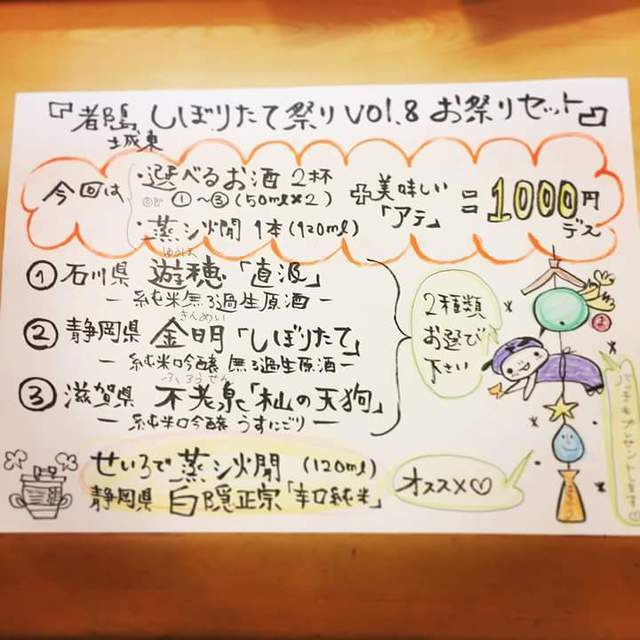 『都島 しぼりたて祭り VOl.8 お祭りセット』
城東
今回は
・選べるお酒 2杯
①〜③(50ml×2)
・蒸シ燗 1本(120ml)
+美味しい「アテ」
=1000円デス
① 石川県 遊穂「直汲」
ゆうほ
ー純米無ろ過生原酒ー
② 静岡県 金明「しぼりたて」
きんめい
ー純米吟醸 無ろ過生原酒ー
③ 滋賀県 不老泉「杣の天狗」
ふろうせん
ー純米吟醸 うすにごりー
2種類
お選び
下さい
せいろで 蒸シ燗 (120ml)
静岡県 白隠正宗「辛口純米」
オススメ♡
プレゼントします